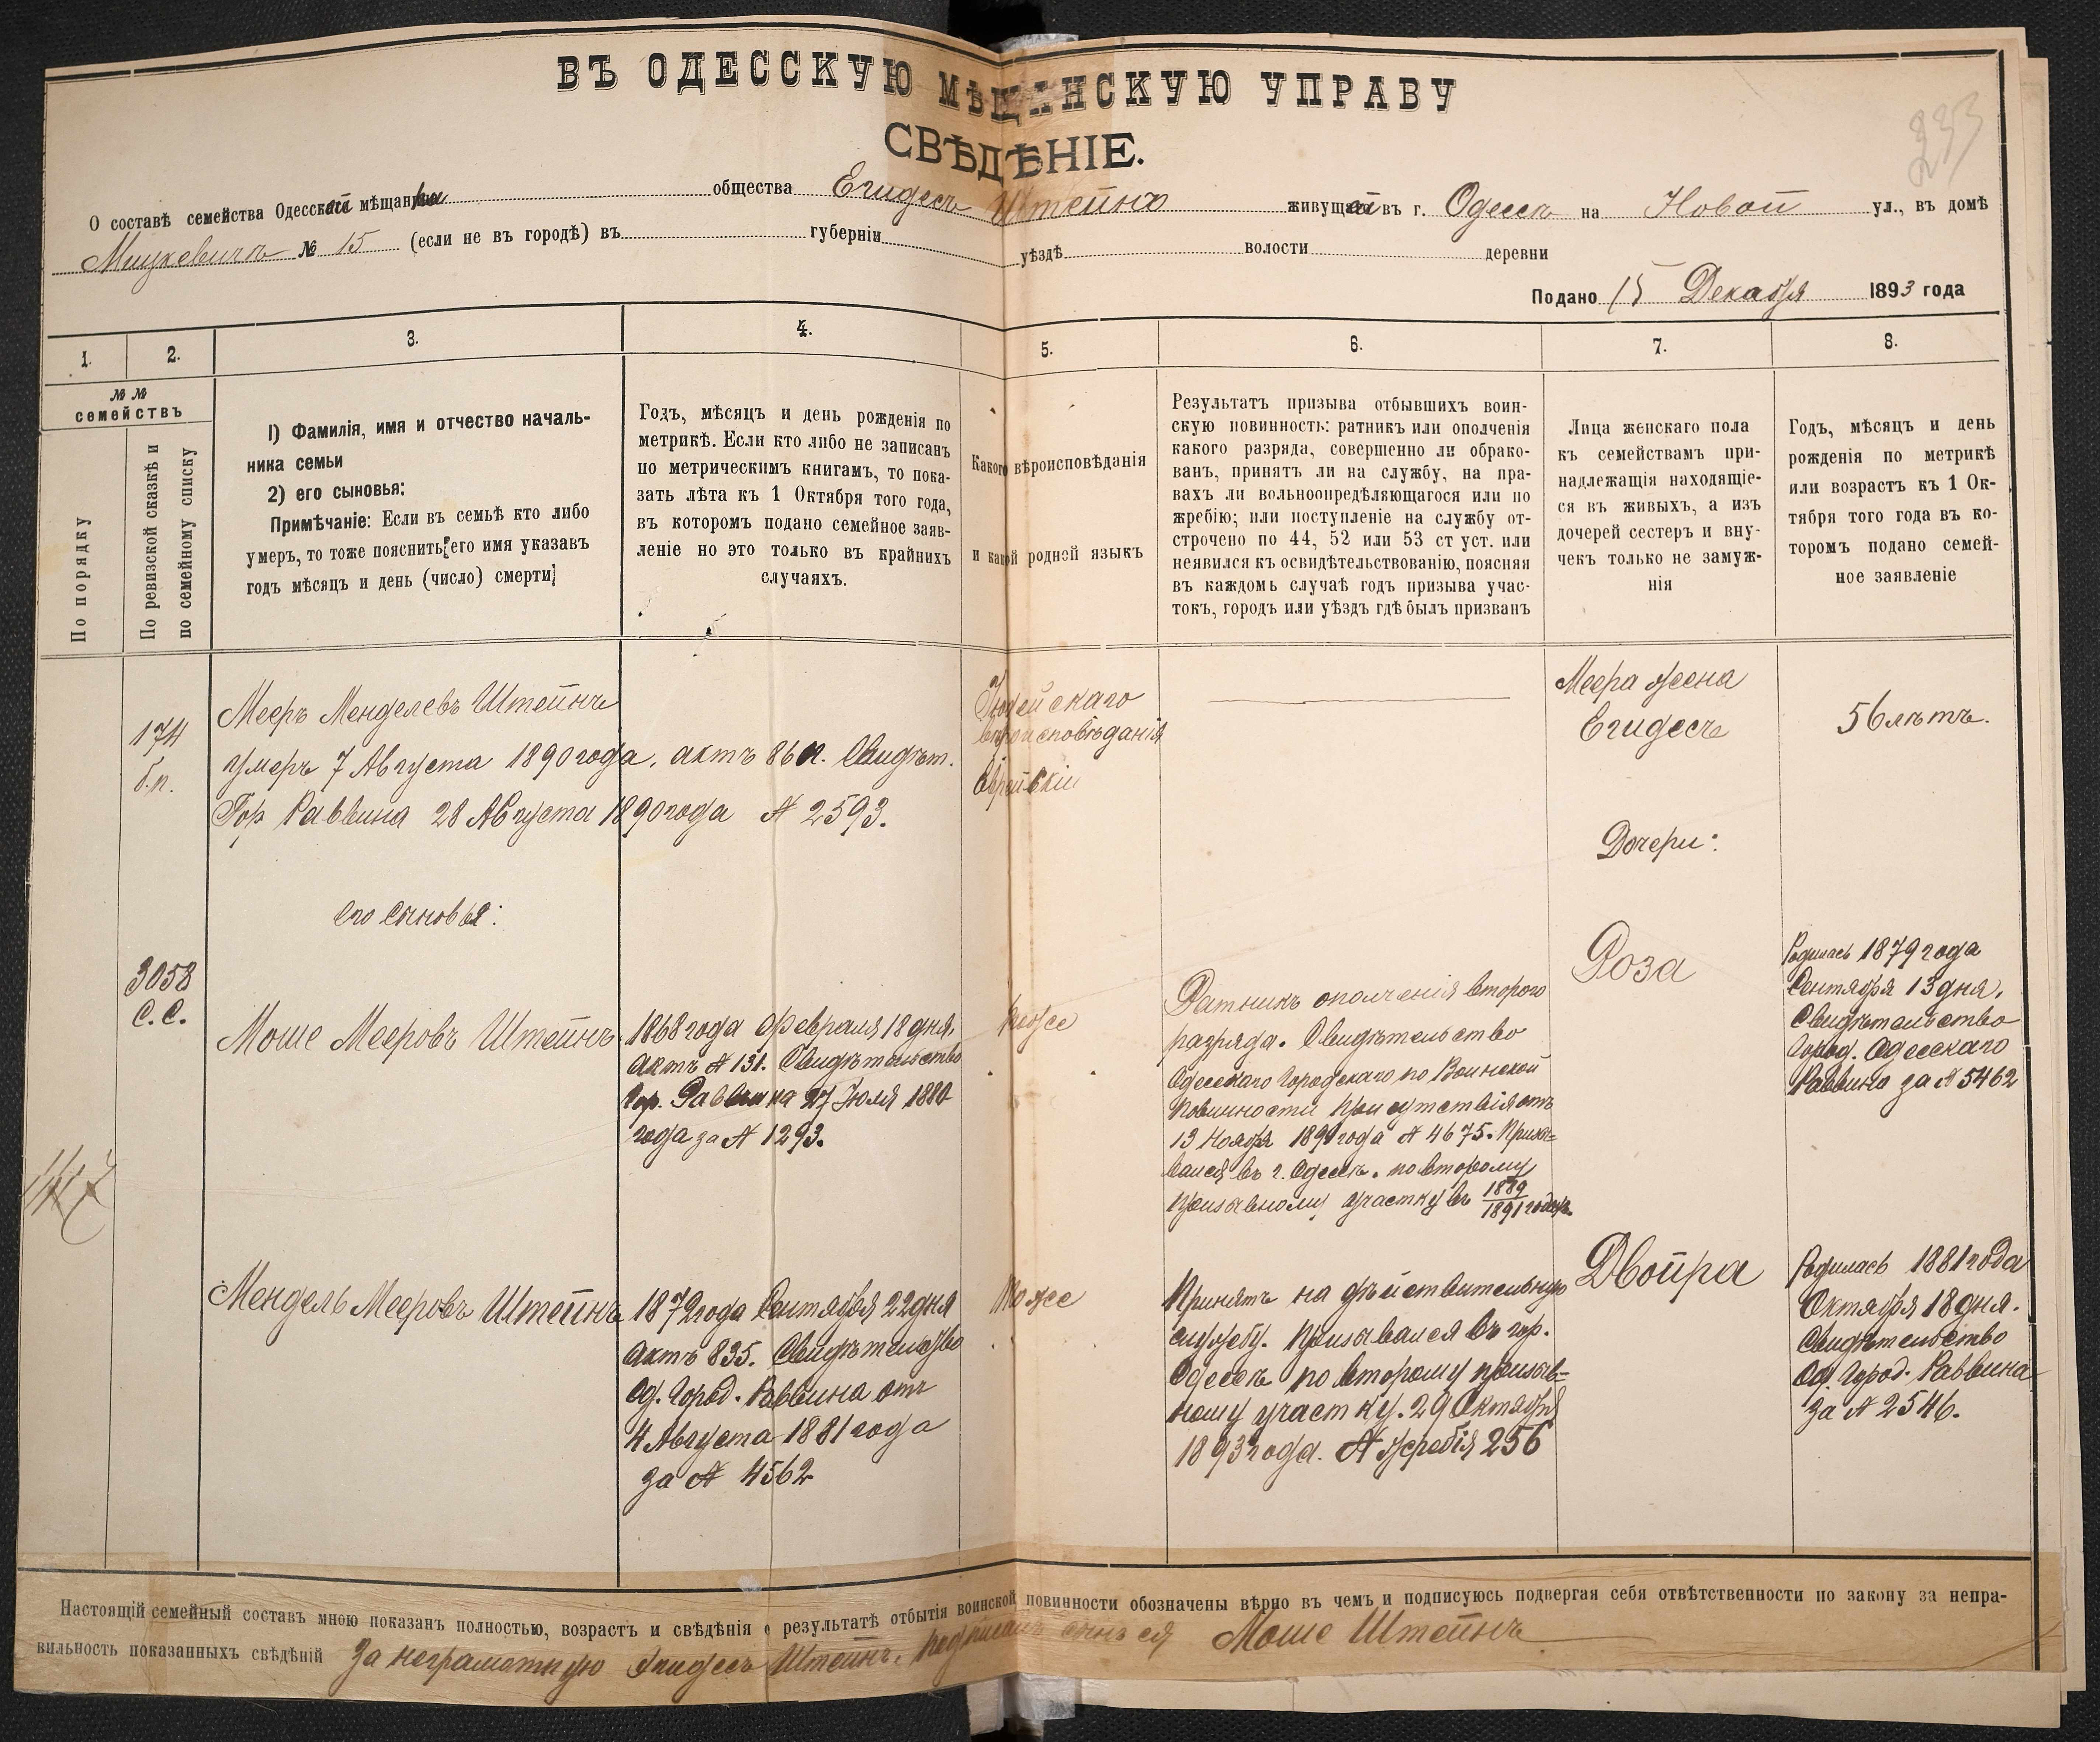 ВЪ ОДЕССКУЮ МѢЩАНСКУЮ УПРАВУ
СВѢДѢНІЕ.
О составѣ семейства Одесской мѣщанки общества Егидесъ Штейнъ живущей въ г. Одессѣ на Новой ул., въ домѣ
Мицкевичъ № 15 (если не въ городѣ) въ губерніи уѣздѣ волости деревни
Подано 15 Декабря 1893 года
1.
2.
3.
4.
5.
6.
7.
8.
№ №
семействъ
По порядку
По ревизской сказкѣ и
по семейному списку
1) Фамилія, имя и отчество началь-
ника семьи
2) его сыновья:
Примѣчаніе: Если въ семьѣ кто либо
умеръ, то тоже пояснить его имя указавъ
годъ мѣсяцъ и день (число) смерти
Годъ, мѣсяцъ и день рожденія по
метрикѣ. Если кто либо не записанъ
по метрическимъ книгамъ, то пока-
зать лѣта къ 1 Октября того года,
въ которомъ подано семейное заяв-
леніе но это только въ крайнихъ
случаяхъ.
Какого вѣроисповѣданія
и какой родной языкъ
Результатъ призыва отбывшихъ воин-
скую повинность: ратникъ или ополченія
какого разряда, совершенно ли обрако-
ванъ, принятъ ли на службу, на пра-
вахъ ли вольноопредѣляющагося или по
жребію; или поступленіе на службу от-
строчено по 44, 52 или 53 ст уст. или
неявился къ освидѣтельствованію, поясняя
въ каждомъ случаѣ годъ призыва учас-
токъ, городъ или уѣздъ гдѣ былъ призванъ
Лица женскаго пола
къ семействамъ при-
надлежащія находящіе-
ся въ живыхъ, а изъ
дочерей сестеръ и вну-
чекъ только не замуж-
нія
Годъ, мѣсяцъ и день
рожденія по метрикѣ
или возрастъ къ 1 Ок-
тября того года въ ко-
торомъ подано семей-
ное заявленіе
174
б.п.
Мееръ Менделевъ Штейнъ
умеръ 7 Августа 1890 года, актъ 86 п. Свидѣт.
Гор Раввина 28 Августа 1890 года № 2593.
Іудейскаго
вѣроисповѣданія
Еврейскій
Меера жена
Егидесъ
56 лѣтъ.
Дочери:
его сыновья:
3058
С.С.
Моше Мееровъ Штейнъ
1868 года Февраля 18 дня,
актъ № 131. Свидѣтельство
Гор. Раввина 27 Іюля 1880
года за № 1293.
тоже
Ратникъ ополченія второго
разряда. Свидѣтельство
Одесскаго Городскаго по Воинской
повинности присутствія отъ
13 Ноября 1891 года № 4675. Призы-
вался въ г. Одессѣ. по второму
призывному участку въ 1889/1891 годахъ
Роза
Родилась 1879 года
Сентября 13 дня.
Свидѣтельство
Город. Одесскаго
Раввина за № 5462
Мендель Мееровъ Штейнъ
1872 года Сентября 22 дня
актъ 835. Свидѣтельство
Од. Город. Раввина отъ
4 Августа 1881 года
за № 4562
тоже
Принятъ на дѣйствительную
службу. Призывался въ гор.
Одессѣ по второму призыв-
ному участку. 29 Октября
1893 года. № жребія 256
Двойра
Родилась 1881 года
Октября 18 дня.
Свидѣтельство
Од. Город. Раввина
за № 2546.
Настоящій семейный составъ мною показанъ полностью, возрастъ и свѣдѣнія о результатѣ отбытія воинской повинности обозначены вѣрно въ чемъ и подписуюсь подвергая себя отвѣтственности по закону за непра-
вильность показанныхъ свѣдѣній За неграмотную Егидесъ Штейнъ, подписалъ сынъ ея Моше Штейнъ